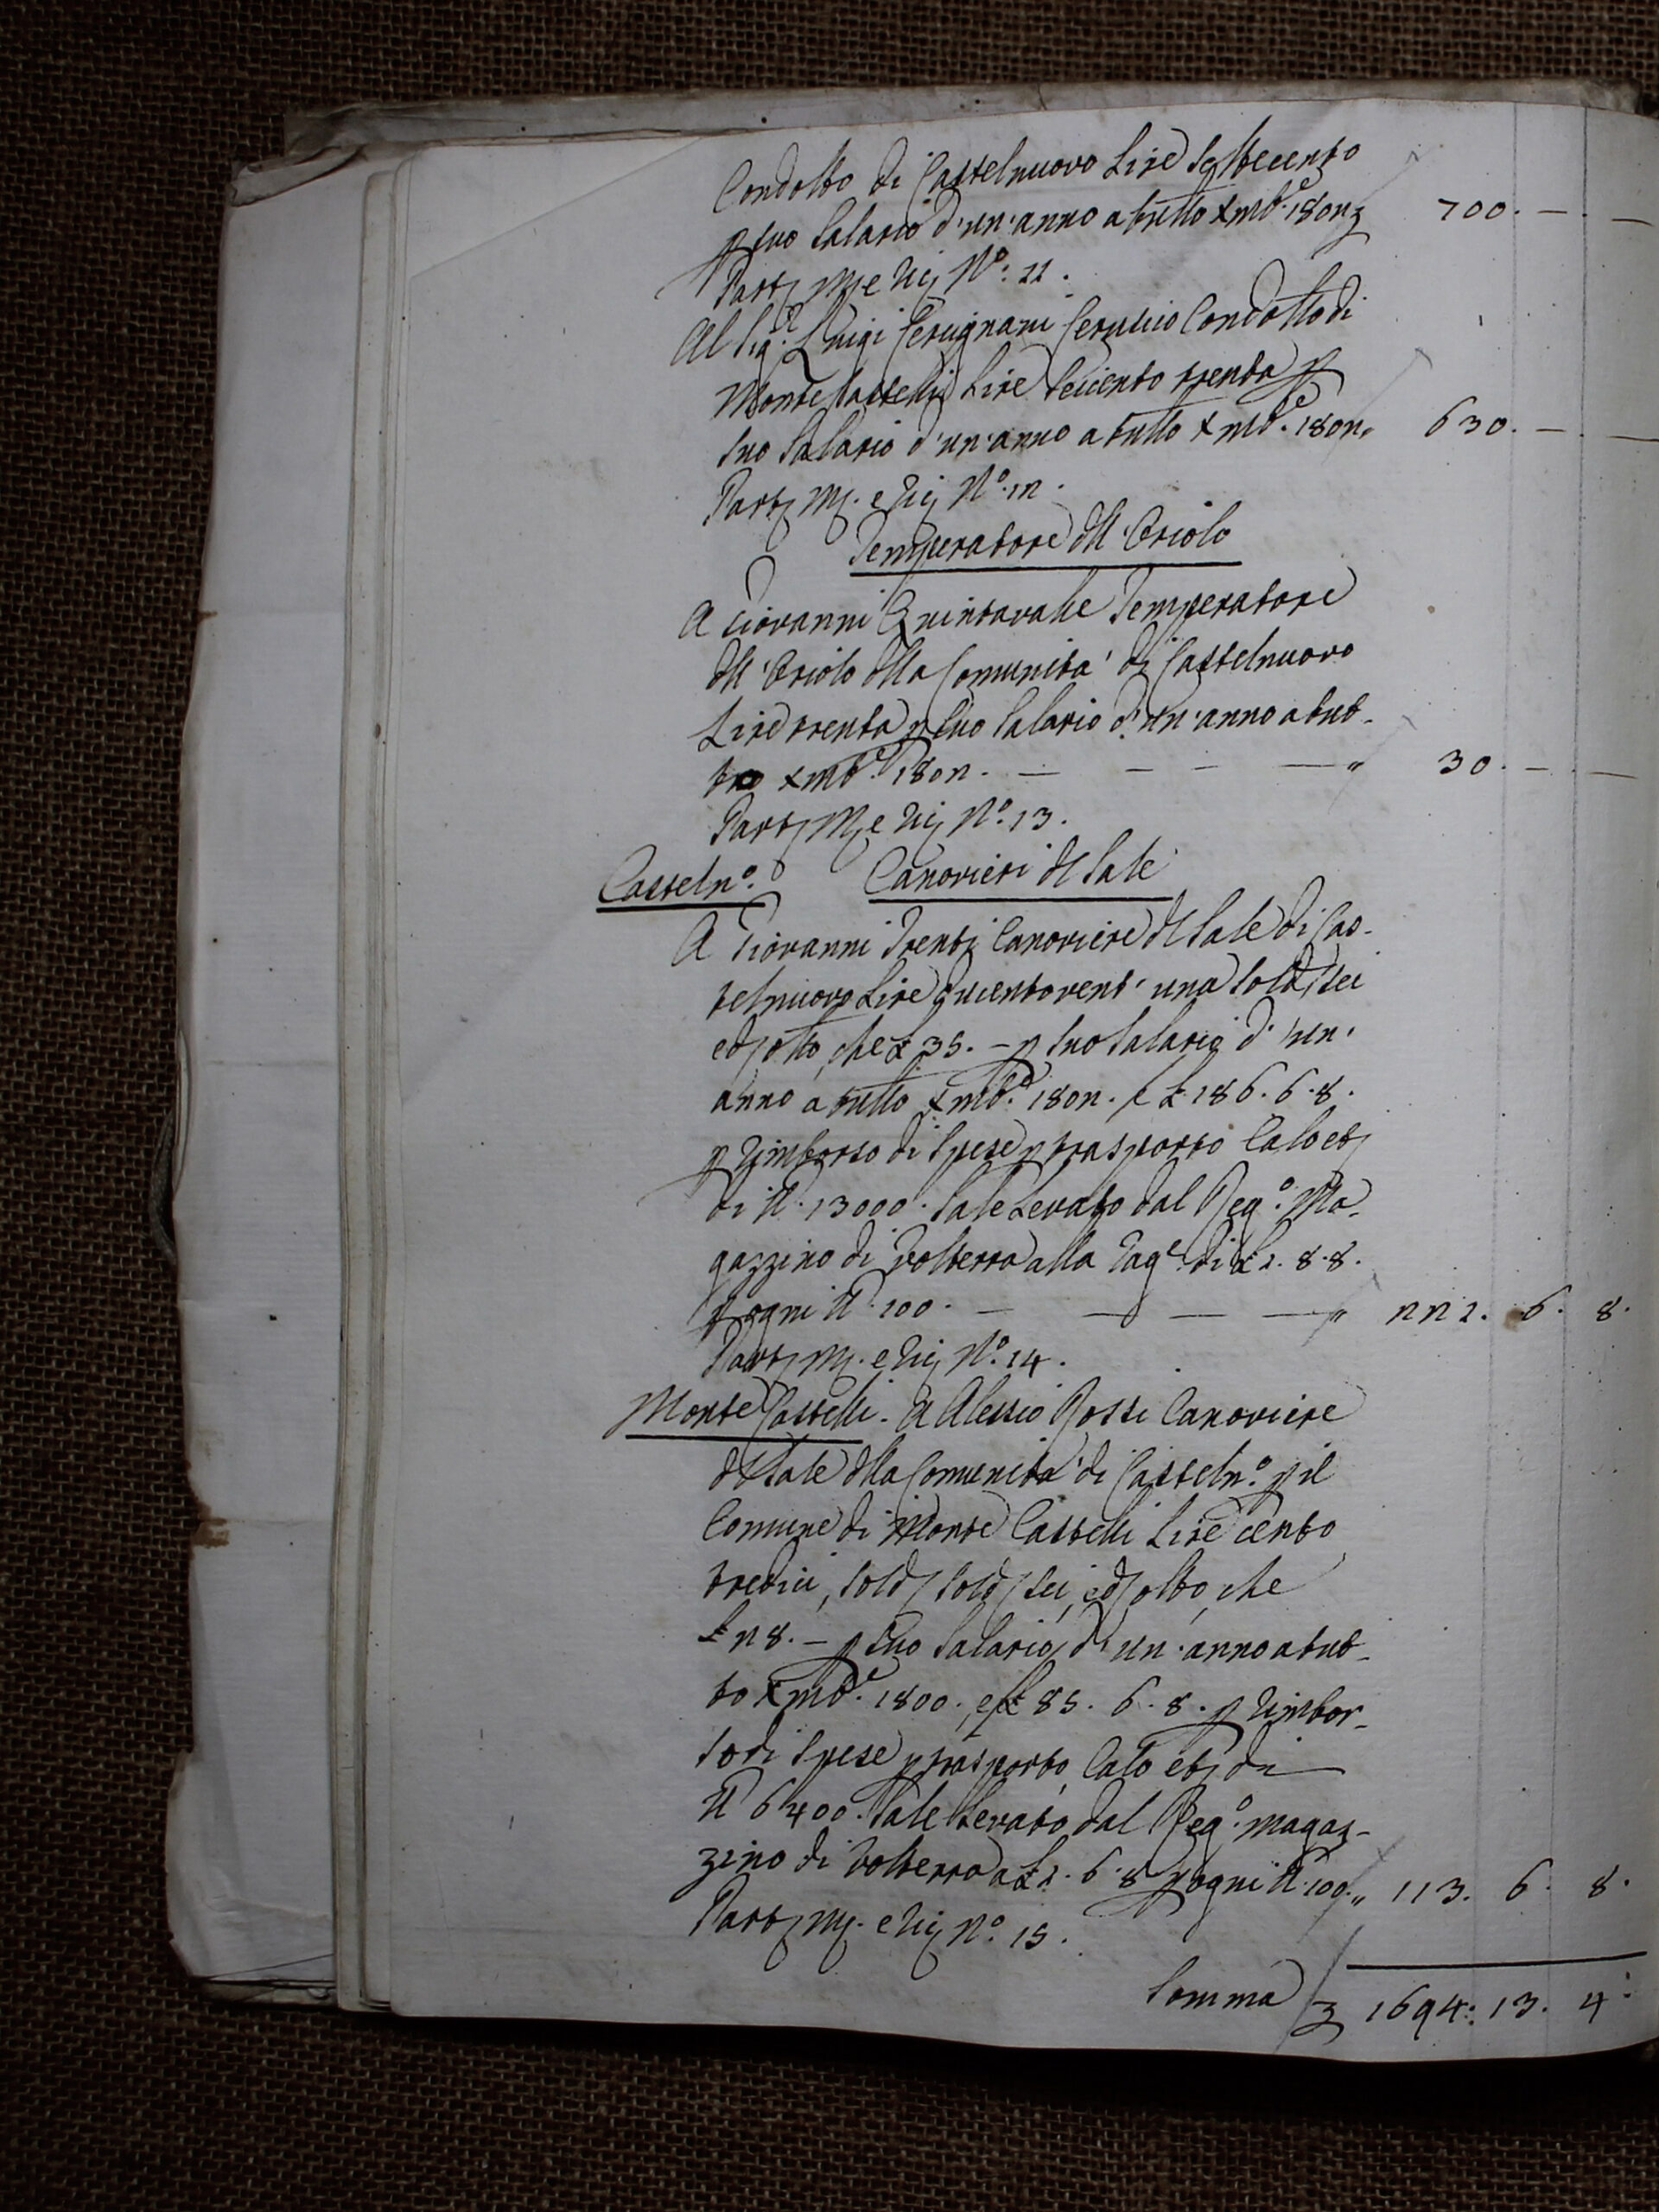 Condotto di Castelnuovo Lire Settecento
p suo Salario d'un'anno a tutto Xmbe. 1802 700. — . —
Part; M; e Ric; N°: 11.
Al Sig.r Luigi Cerugnani Cerusico Condotto di
Monte Castelli Lire Seicento trenta p
suo Salario d'un'anno a tutto Xmbe. 1802 „ 630. — . —
Part; M;. e Ric; N°. 12.
Temperatore dll'Oriolo
A Giovanni Quintavalle Temperatore
dll'Oriolo dlla Comunita' di Castelnuovo
Lire trenta p suo Salario d'un'anno a tut-
to Xmbe. 1802. — — — — „ 30. — . —
Part; M; e Ric; N°. 13.
Casteln°. Canovieri dl Sale
A Giovanni Trenti Canoviere dl Sale di Cas-
telnuovo Lire Ducentovent'una Sold; sei
e d; otto, che £ 35. — p suo Salario d'un'
anno a tutto Xmbe. 1802. e £ 186. 6. 8.
p Rimborso di Spese p trasporto Calo et;
di lb. 13000. Sale Levato dal Reg°. Ma-
gazzino di Volterra alla Rage. di £ 1. 8. 8.
p ogni lb. 100. — — — — „ 221. 6. 8.
Part; M;. e Ric; N°. 14.
Monte Castelli. A Alessio Rossi Canoviere
dl Sale dlla Comunita' di Casteln°. p il
Comune di Monte Castelli Lire cento
tredici, Sold; Sold; sei, e d; otto, che
£ 28. — p suo Salario d'un'anno a tut-
to Xmbe. 1800. e £ 85. 6. 8. p Rimbor-
so di Spese p trasporto, Calo et; di
lb 6400. Sale Levato dal Reg°. Magaz-
zino di Volterra a £ 1. 6. 8 p ogni lb. 100. „ 113. 6. 8.
Part; M;. e Ric; N°. 15.
Somma 1694: 13. 4.